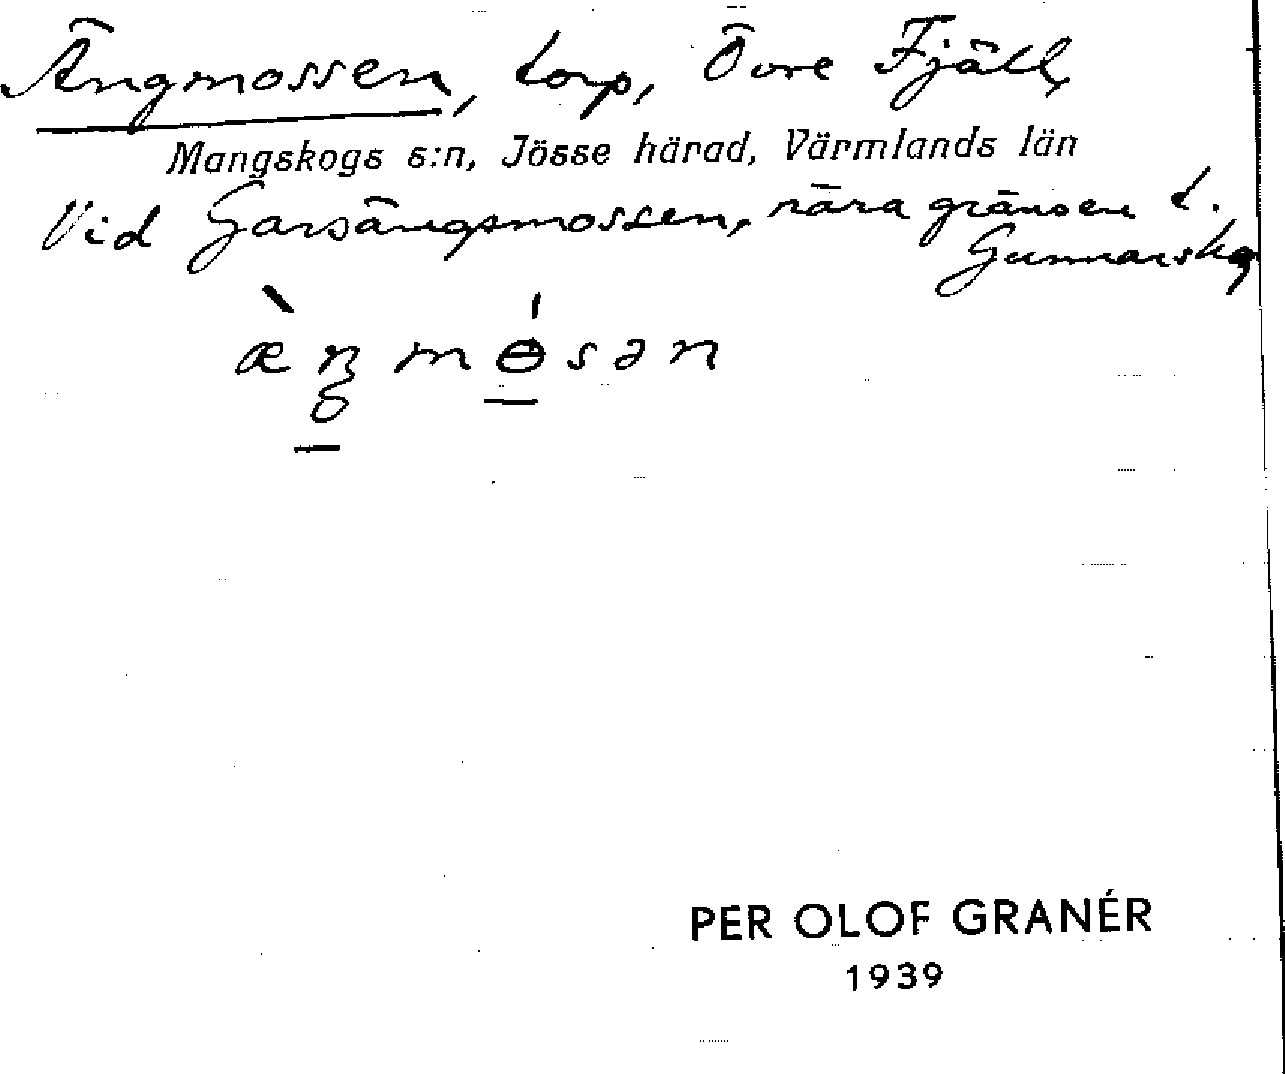 Ängmossen, torp, Övre Fjäll,
Mangskogs s:n, Jösse härad, Värmlands län
Vid Garsängsmossen, nära gränsen t.
Gunnarskog
PER OLOF GRANÉR
1939